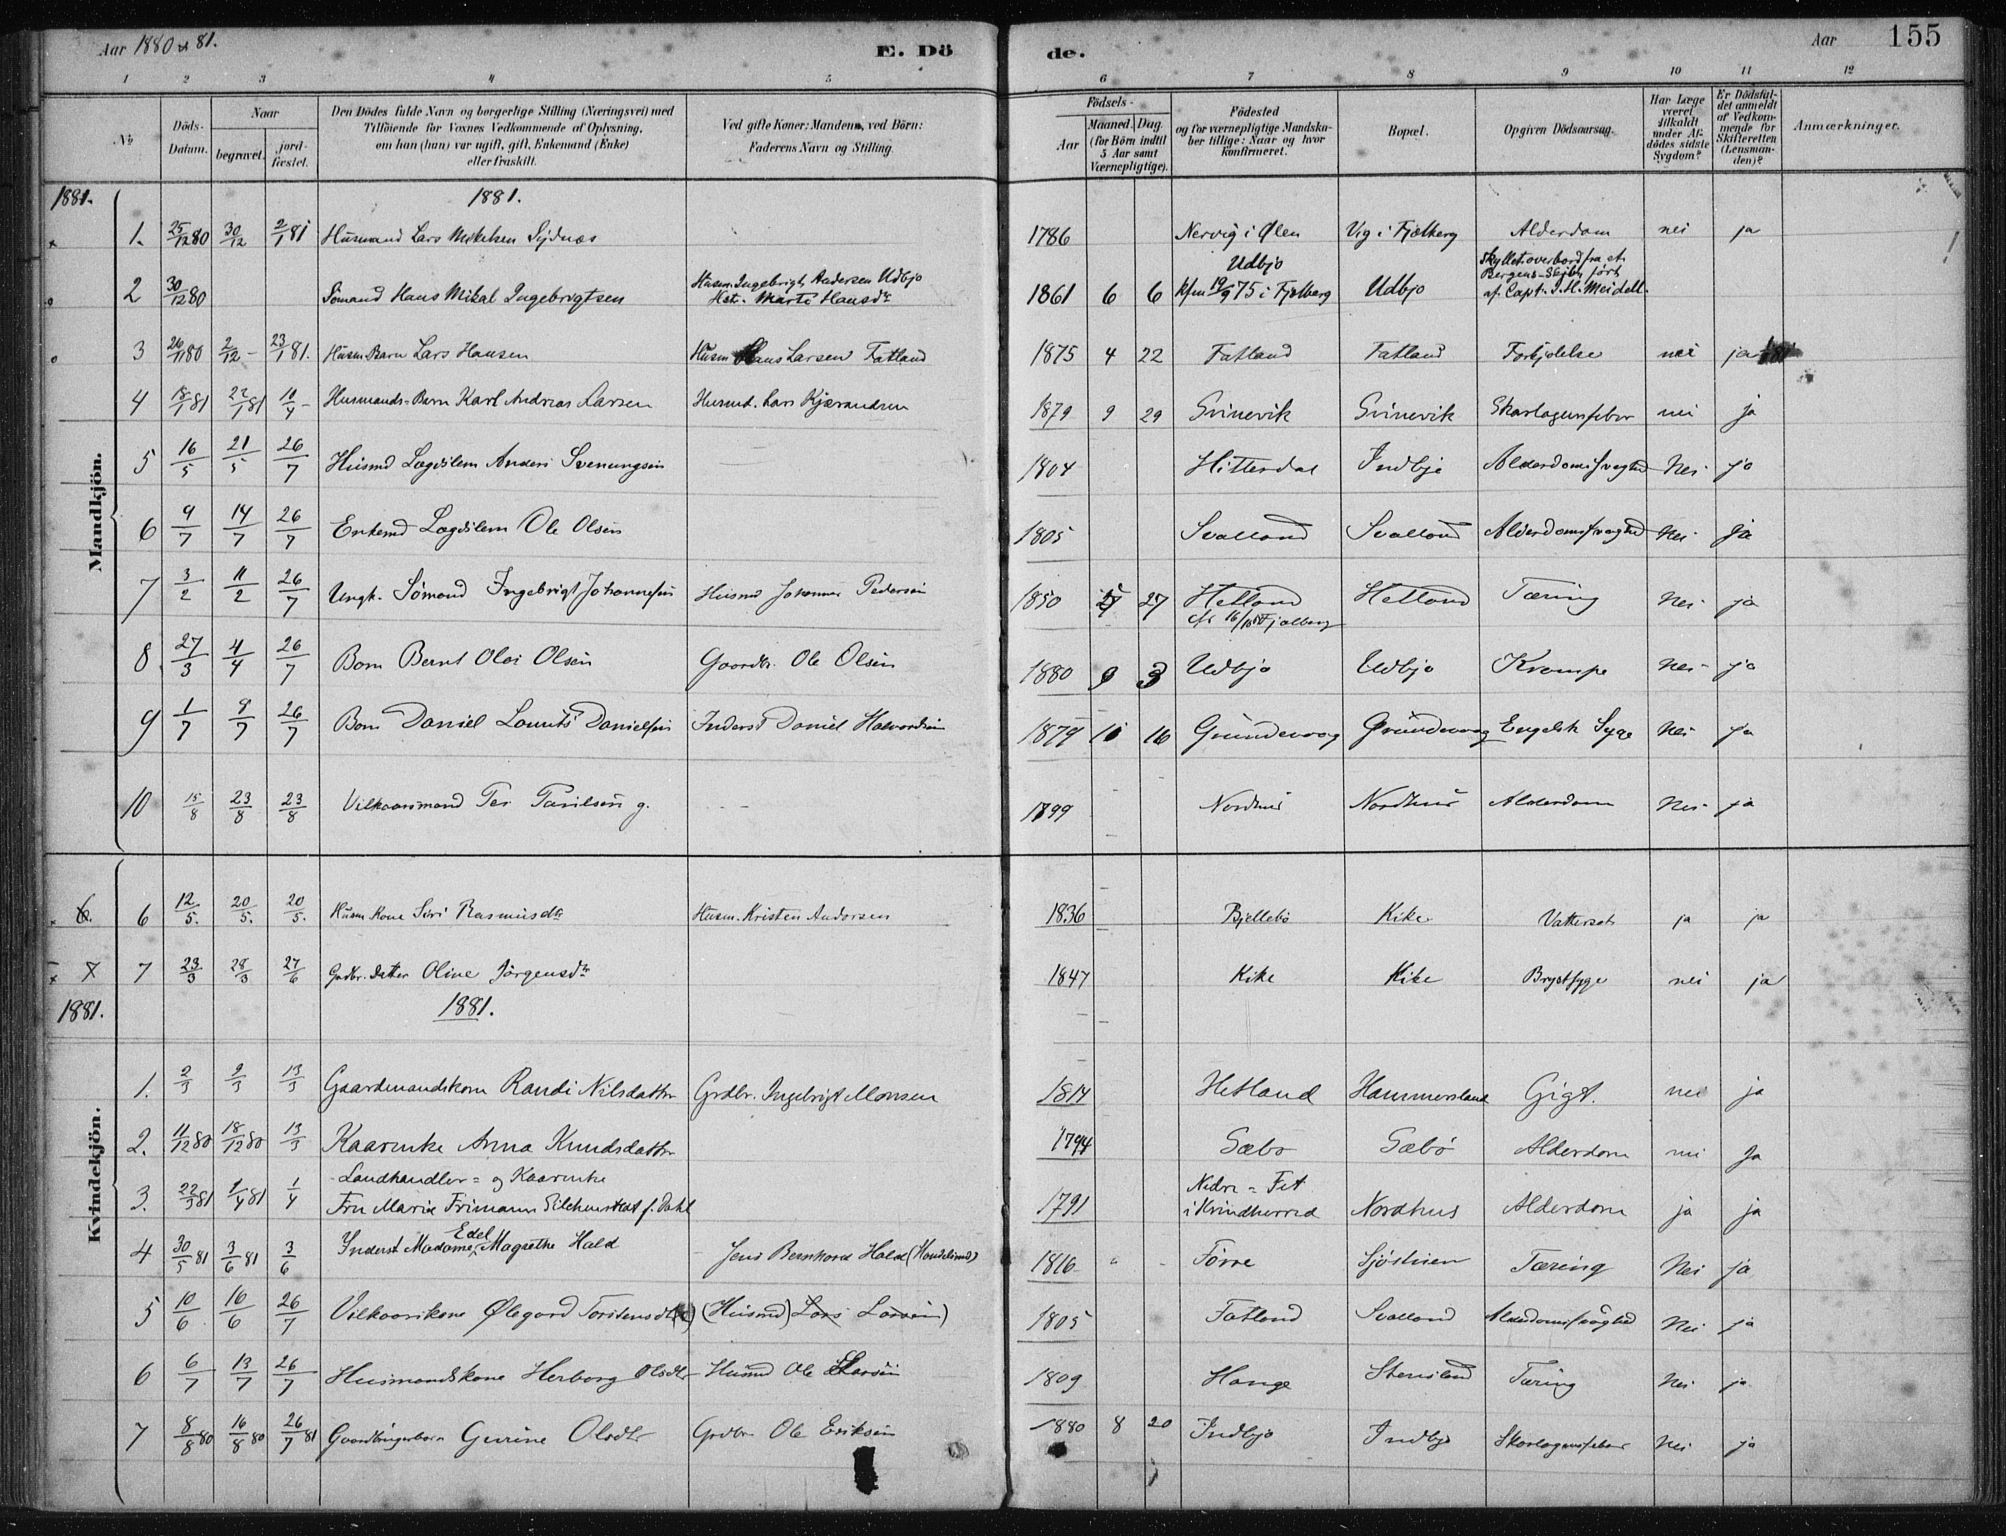 Aar 1880 & 81.
E. Dö
de.
Aar
155
1 2 3 4 5 6 7 8 9 10 11 12
No
Döds-Datum.
Naar
begravet.
jordfæstet.
Den Dödes fulde Navn og borgerlige Stilling (Næringsvei) med
Tilföiende for Voxnes Vedkommende af Oplysning,
om han (hun) var ugift, gift, Enkemand (Enke)
eller fraskilt.
Ved gifte Koner: Mandens, ved Börn:
Faderens Navn og Stilling.
Födsels-
Aar
Maaned. Dag
(for Börn indtil
5 Aar samt
Værnepligtige).
Födested
og for værnepligtige Mandska-
ber tillige: Naar og hvor
konfirmeret.
Bopæl.
Opgiven Dödsaarsag.
Har Læge
været
tilkaldt
under Af-
dödes sidste
Sygdom?
Er Dödsfal-
det anmeldt
af Vedkom-
mende for
Skifteretten
(Lensman-
den)?
Anmærkninger.
Mandkjön.
1881.
1881.
1. 25/12 80 30/12 2/1 81 Husmand Lars Mikelsen Sydnæs 1786 Nervig i Ølen Vig i Fjelberg Alderdom nei ja
2 30/12 80 Sømand Hans Mikal Ingebrigtsen Husm. Ingebrigt Andersen Udbjo Hst. Marte Hansdr 1861 6 6 Udbjo kfm 19/9 75 i Fjelberg Udbjo Skyllet overbord fra et Bergens-Skib, ført af Capt. J. H. Meidell.
3 26/11 80 2/12 - 23/1 81. Husm. Barn Lars Hansen Husm Hans Larsen Fatland 1875 4 22 Fatland Fatland Forkjølelse nei ja
4 18/1 81 22/1 81 10/4 - Husmands-Barn Karl Andreas Larsen Husmd. Lars Kjærandsen 1879 9 29 Svinevik Svinevik Skarlagensfeber nei ja
5 16/5 21/5 26/7 Husmd Lægdslem Anders Svenungsen 1804 Hitterdal Indbjo Alderdomssvaghed Nei ja
6 9/7 14/7 26/7 Enkemd Lægdslem Ole Olsen 1805 Svalland Svalland Alderdomssvaghed Nei Ja
7 3/2 11/2 26/7 Ungk. Sömand Ingebrigt Johannessen Husmd Johannes Pedersen 1850 27 Hetland Hetland Tæring Nei ja
8 27/3 4/4 26/7 Barn Bernt Olai Olsen Gaardbr. Ole Olsen 1880 9 3 Udbjo Udbjo Krampe Nei ja
9 1/7 9/7 26/7 Barn Daniel Laurits Danielsen Inderst Daniel Halvordsen 1879 10 16 Grundevaag Grundevaag Engelsk Syge Nei Ja
10 15/8 23/8 23/8 Vilkaarsmand Per g. 1799 Nordhus Nordhus Alderdom Nei ja
6. 6 12/5. 20/5. 20/5. Husm. Kone Siri Rasmusdtr Husm. Kristen Andersen 1836 Bjellebø Kike Vattersot ja ja
7 7 23/3 28/3 27/6 Grdbr. Datter Oline Jörgensdtr 1847 Kike Kike Brystsyge nei ja
1881.
1881.
Kvindekjön.
1. 2/3 9/3 13/3 Gaardmandskone Randi Nilsdatter Grdbr. Ingebrigt Monsen 1814 Hetland Hammersland Gigt. nei ja
2. 11/12 80 18/12 80 13/3 Kaarenke Anna Knudsdatter 1794 Sæbø Sæbø Alderdom nei Ja
3. 22/3 81 1/4 81 1/4 Landhandler- og Kaarenke Fru Marie Frimann f. Dahl 1791 Nedre-Fet i Kvindherred Nordhus Alderdom ja ja
4 30/5 81 3/6 81 3/6 Inderst Madame Edel Magrethe Hald Jens Bernhard Hald (Handelsmd) 1816 " - Førre Sjöstuen Tæring Nei ja
5 10/6 16/6 26/7 Vilkaarskone Ølegard Torstensdtr (Husmd) Lars Larsen) 1805 Fatland Svalland Alderdomssvaghed Nei ja
6 6/7 13/7 26/7 Husmandskone Herborg Olsdtr Husmd Ole 1809 Hauge Stensland Tæring Nei ja
7 8/8 80 16/8 80 26/7 81 Gaardbrugerbarn Gurine Olsdtr Grdbr Ole Eriksen 1880 8 20 Indbjo Indbjo Skarlagensfeber Nei ja